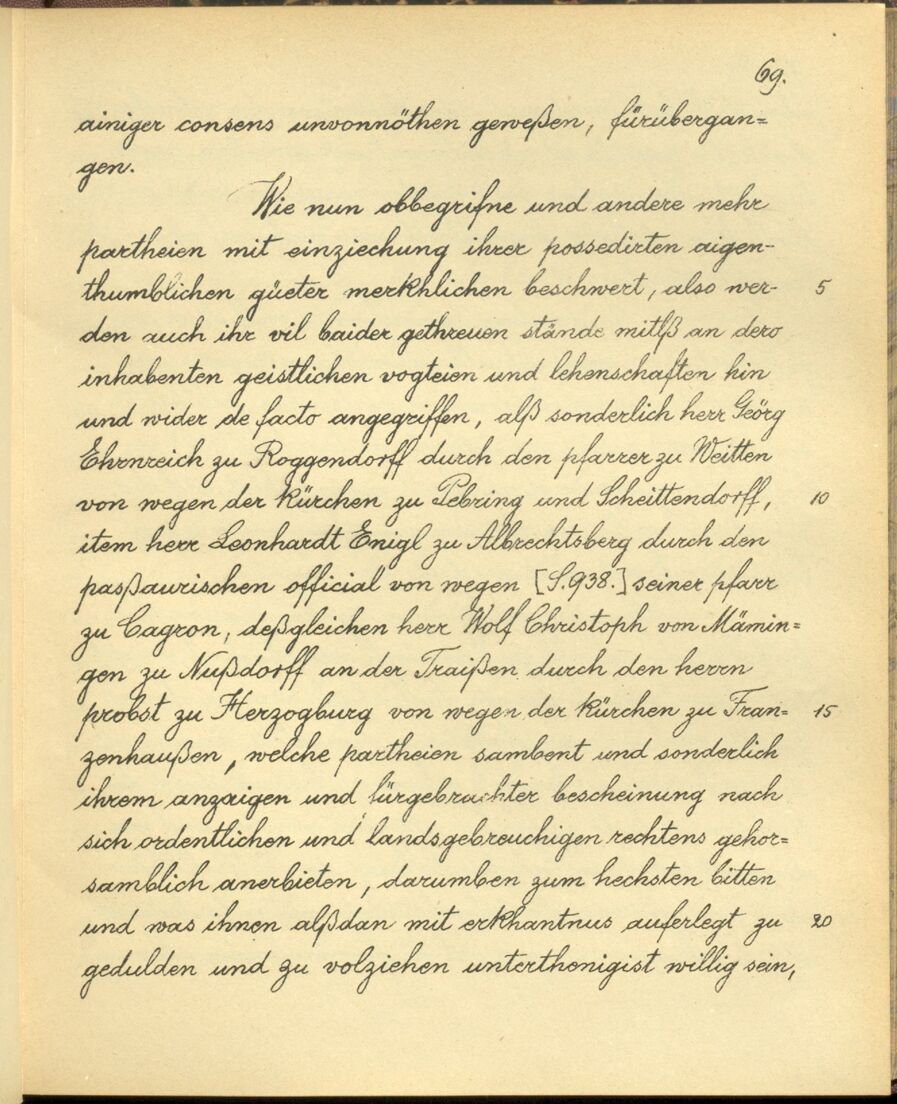 69.
ainiger consens unvonnöthen geweßen, fürübergan=
gen.
Wie nun obbegrifne und andere mehr
partheien mit einziechung ihrer possedirten aigen-
thumblichen güeter merkhlichen beschwert, also wer- 5
den auch ihr vil baider gethreuen stände mitlß an dero
inhabenten geistlichen vogteien und lehenschaften hin
und wider de facto angegriffen, alß sonderlich herr Geörg
Ehrnreich zu Roggendorff durch den pfarrer zu Weitten
von wegen der kürchen zu Pebring und Scheittendorff, 10
item herr Leonhardt Enigl zu Albrechtsberg durch den
paßaurischen official von wegen [S.938.] seiner pfarr
zu Cagron, deßgleichen herr Wolf Christoph von Mämin=
gen zu Nußdorff an der Traißen durch den herrn
probst zu Herzogburg von wegen der kürchen zu Fran= 15
zenhaußen, welche partheien sambent und sonderlich
ihrem anzaigen und fürgebrachter bescheinung nach
sich ordentlichen und landsgebreuchigen rechtens gehor=
samblich anerbieten, darumben zum hechsten bitten
und was ihnen alßdan mit erkhantnus auferlegt zu 20
gedulden und zu volziehen unterthenigist willig sein,